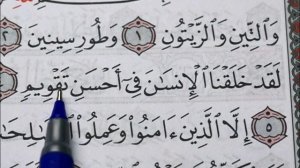 وَٱلتِّينِ وَٱلزَّيْتُونِ ١ وَطُورِ سِينِينَ ٢
لَقَدْ خَلَقْنَا ٱلْإِنسَٰنَ فِىٓ أَحْسَنِ تَقْوِيمٍ
٥ إِلَّا ٱلَّذِينَ ءَامَنُوا۟ وَعَمِلُوا۟